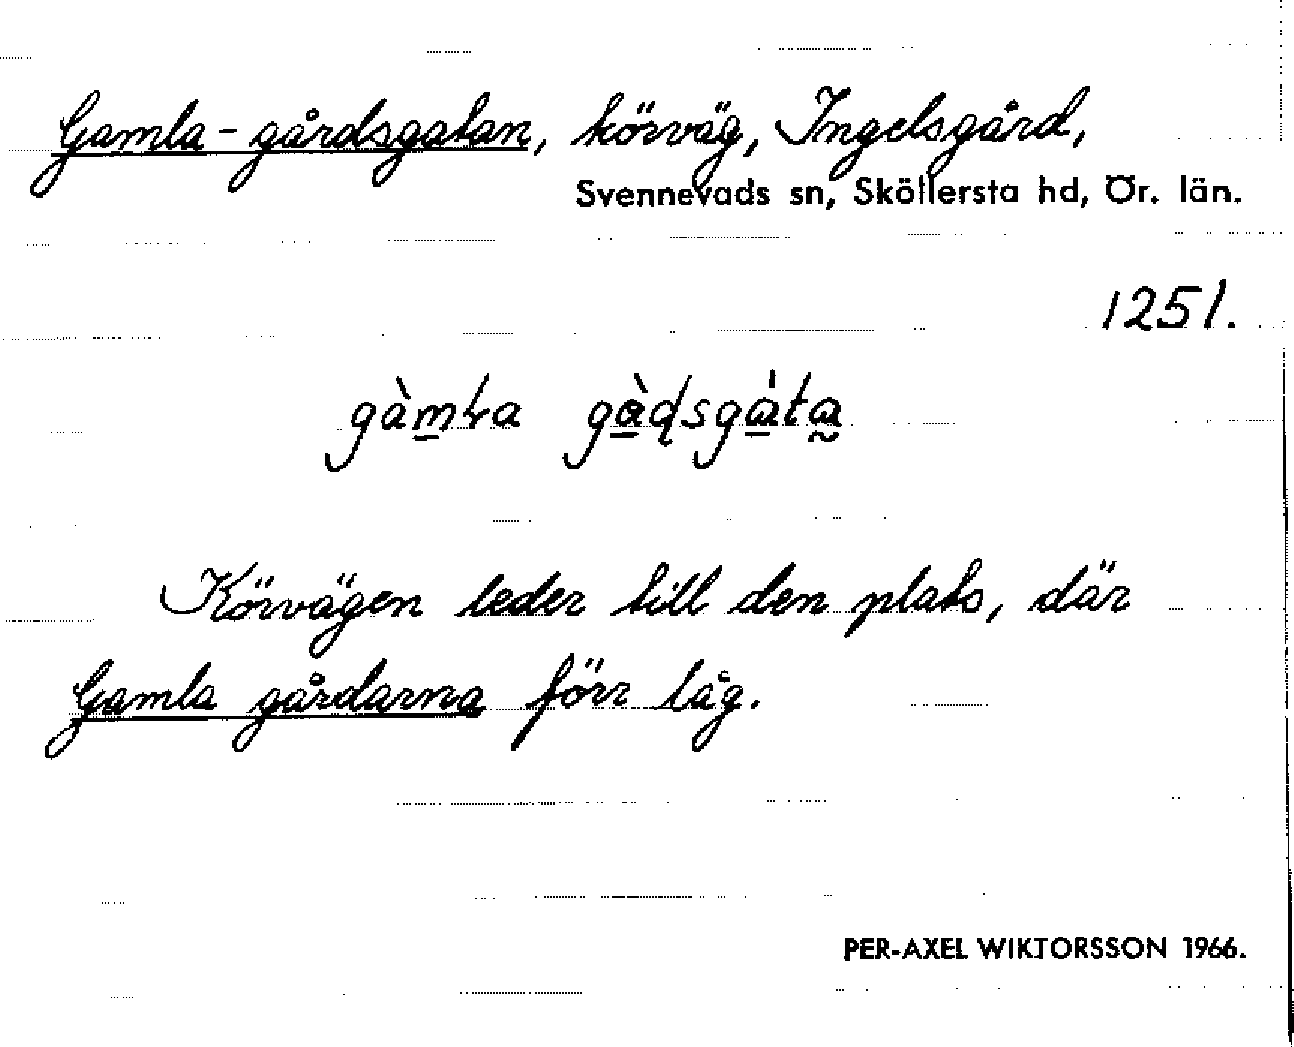 Gamla-gårdsgatan, körväg, Ingelsgård,
Svennevads sn, Sköllersta hd, Ör. län.
1251.
Körvägen leder till den plats, där
Gamla gårdarna förr låg.
PER-AXEL WIKTORSSON 1966.